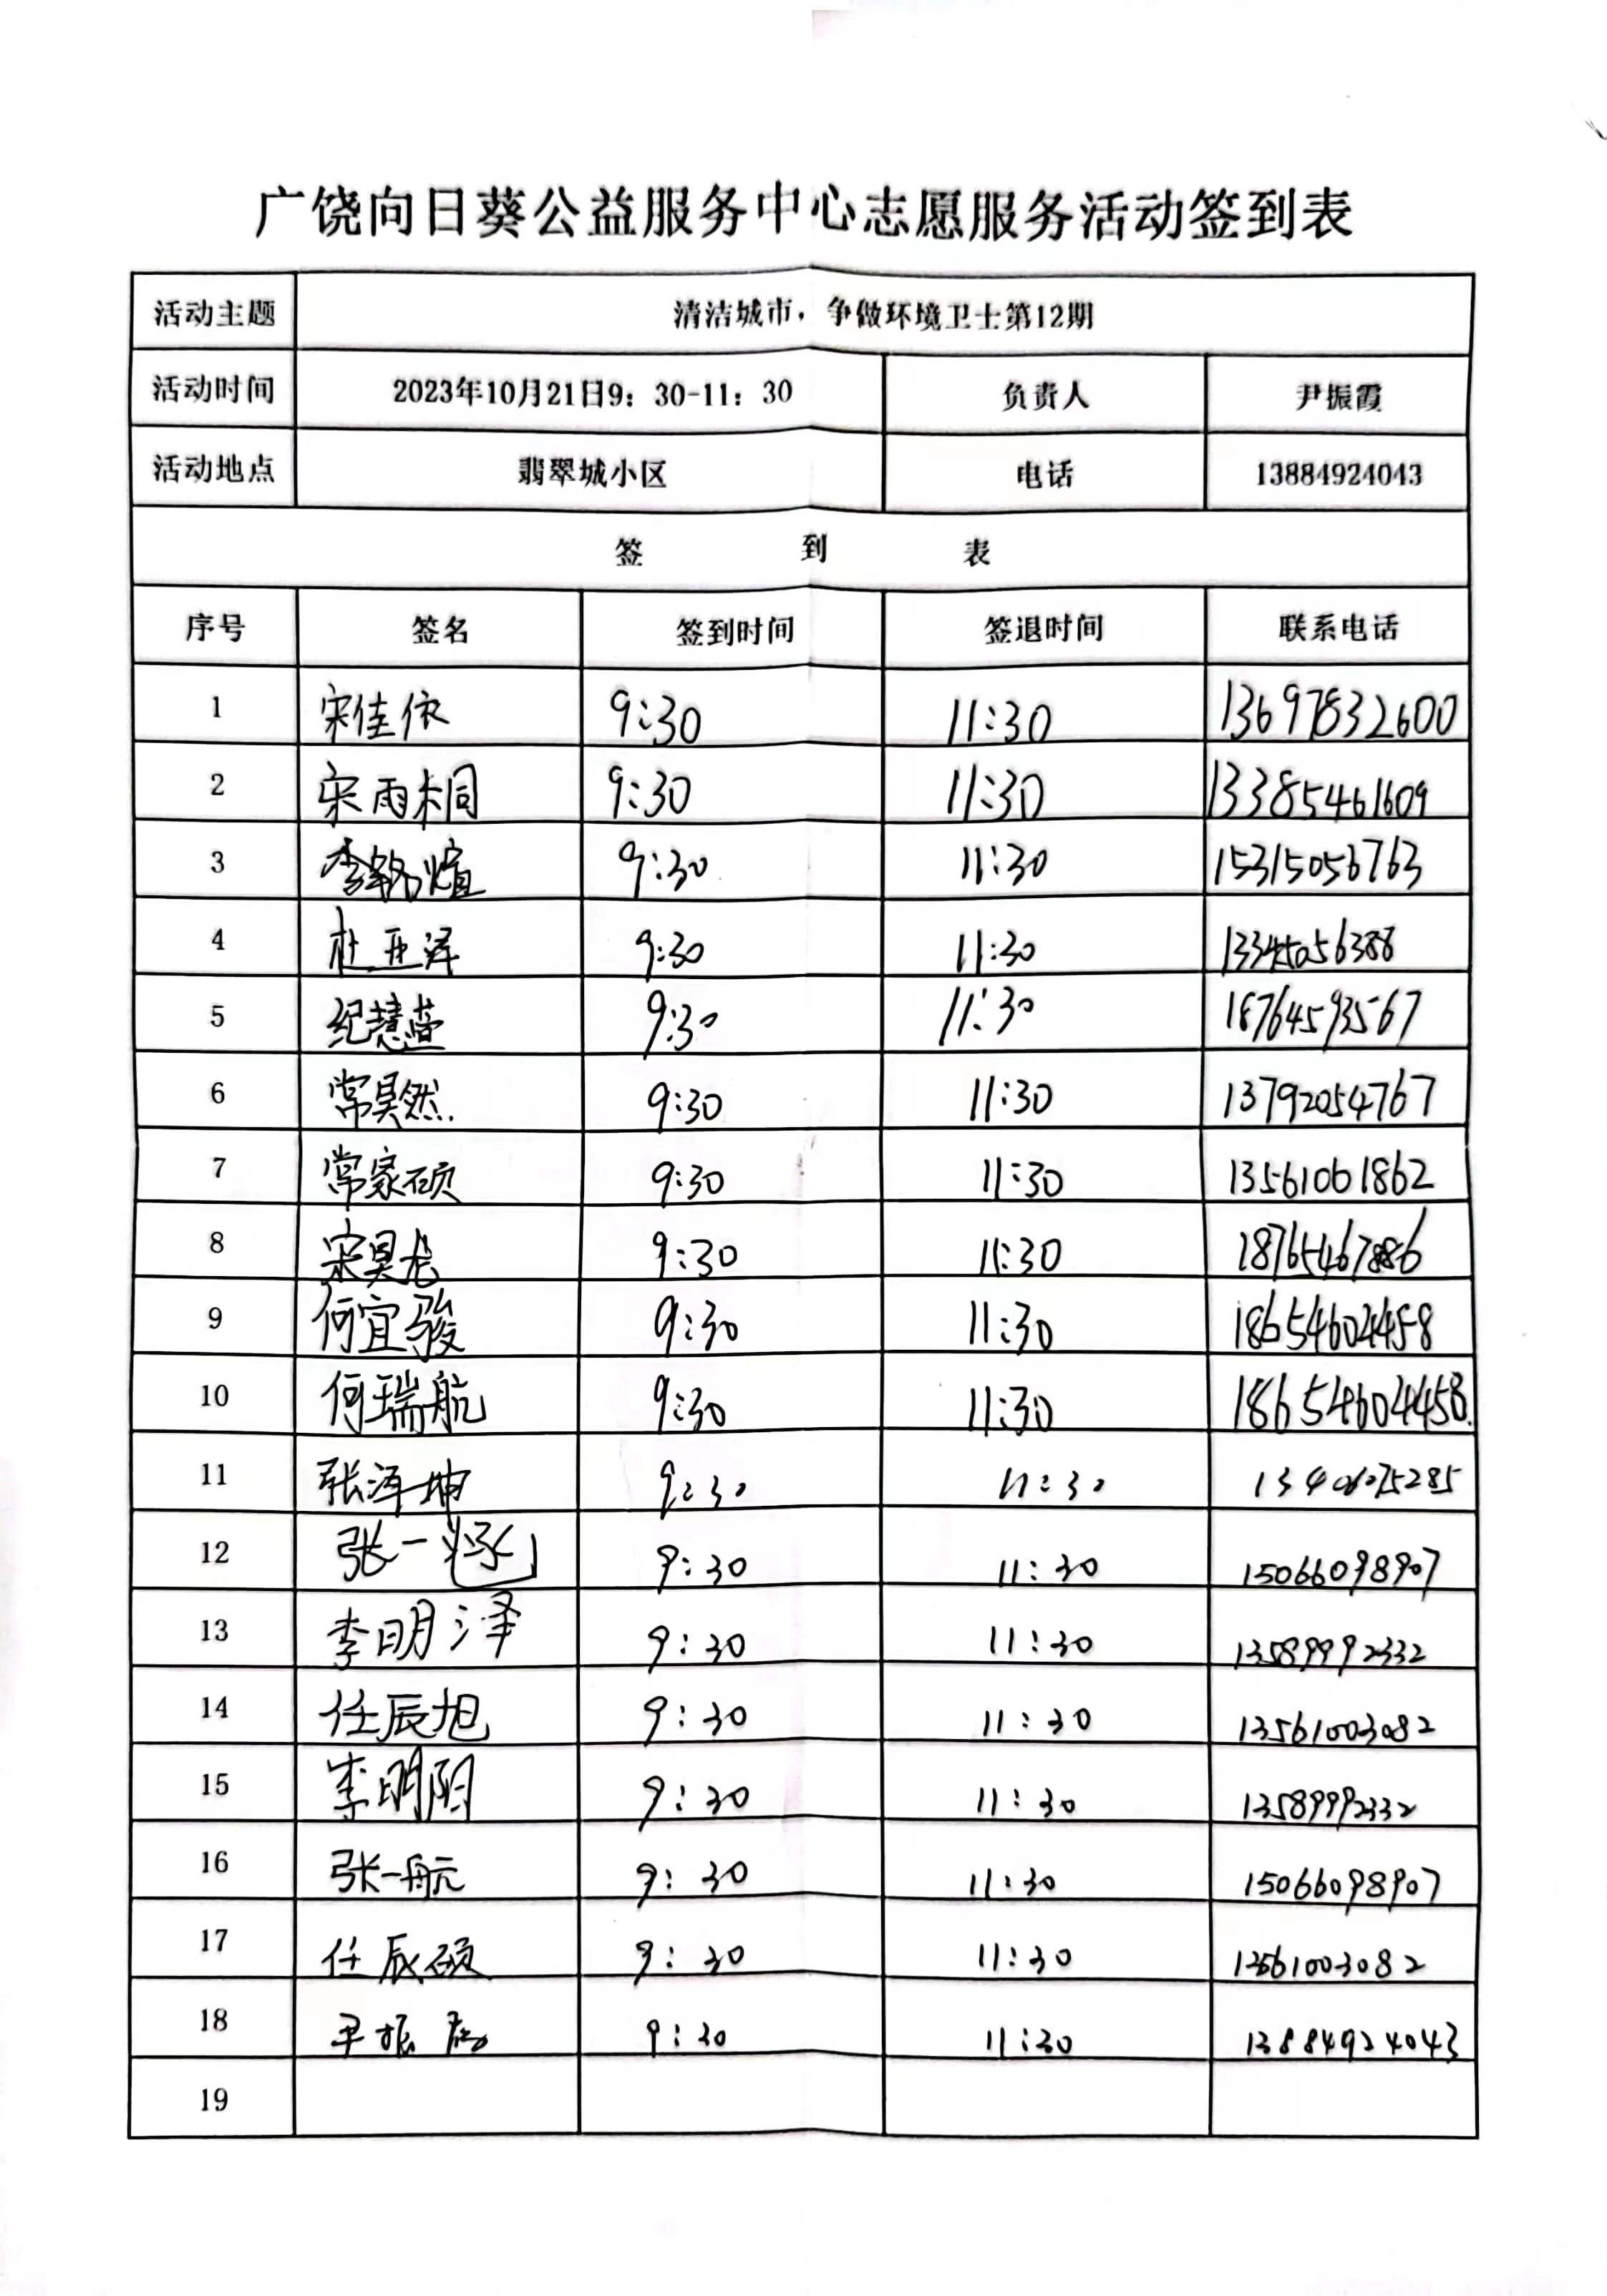 广饶向日葵公益服务中心志愿服务活动签到表
活动主题 清洁城市，争做环境卫士第12期
活动时间 2023年10月21日9：30-11：30 负责人 尹振霞
活动地点 翡翠城小区 电话 13884924043
签 到 表
序号 签名 签到时间 签退时间 联系电话
1 宋佳依 9:30 11:30 13697832600
2 宋雨桐 9:30 11:30 13385461609
3 李铭煊 9:30 11:30 15315056763
4 杜亚泽 9:30 11:30 13345056388
5 纪慧蓝 9:30 11:30 18764593567
6 常昊然 9:30 11:30 13792054767
7 常家硕 9:30 11:30 13561061862
8 宋昊龙 9:30 11:30 18765467886
9 何宜骏 9:30 11:30 18654604458
10 何瑞航 9:30 11:30 18654604458.
11 张泽坤 9:30 11:30 13406075285
12 张一 9:30 11:30 15066098907
13 李明泽 9:30 11:30 13589992332
14 任辰旭 9:30 11:30 13561003082
15 李明阳 9:30 11:30 13589992332
16 张一航 9:30 11:30 15066098907
17 任辰硕 9:30 11:30 13561003082
18 尹振霞 9:30 11:30 13884924043
19